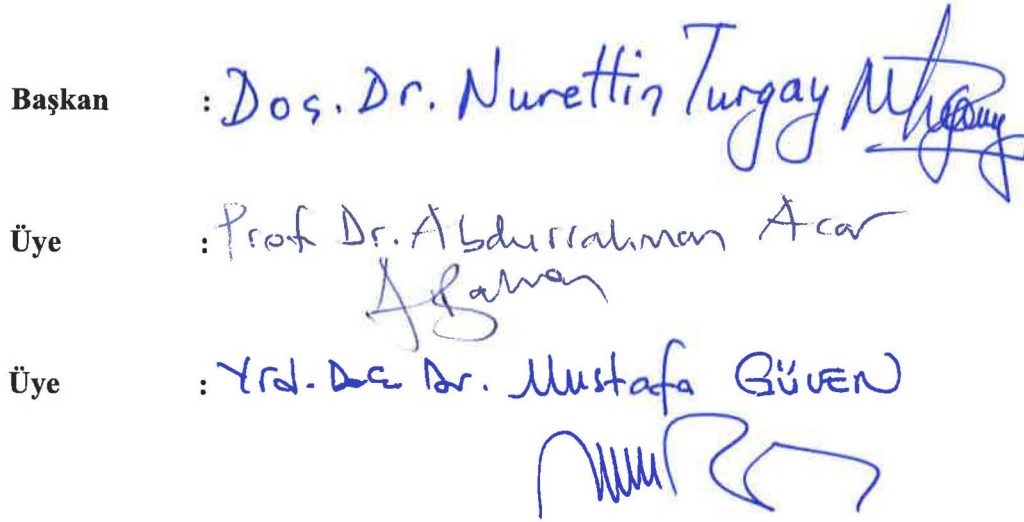 Başkan : Doç. Dr. Nurettin Turgay
Üye : Prof. Dr. Abdurrahman Acar
Üye : Yrd. Doç. Dr. Mustafa GÜVEN